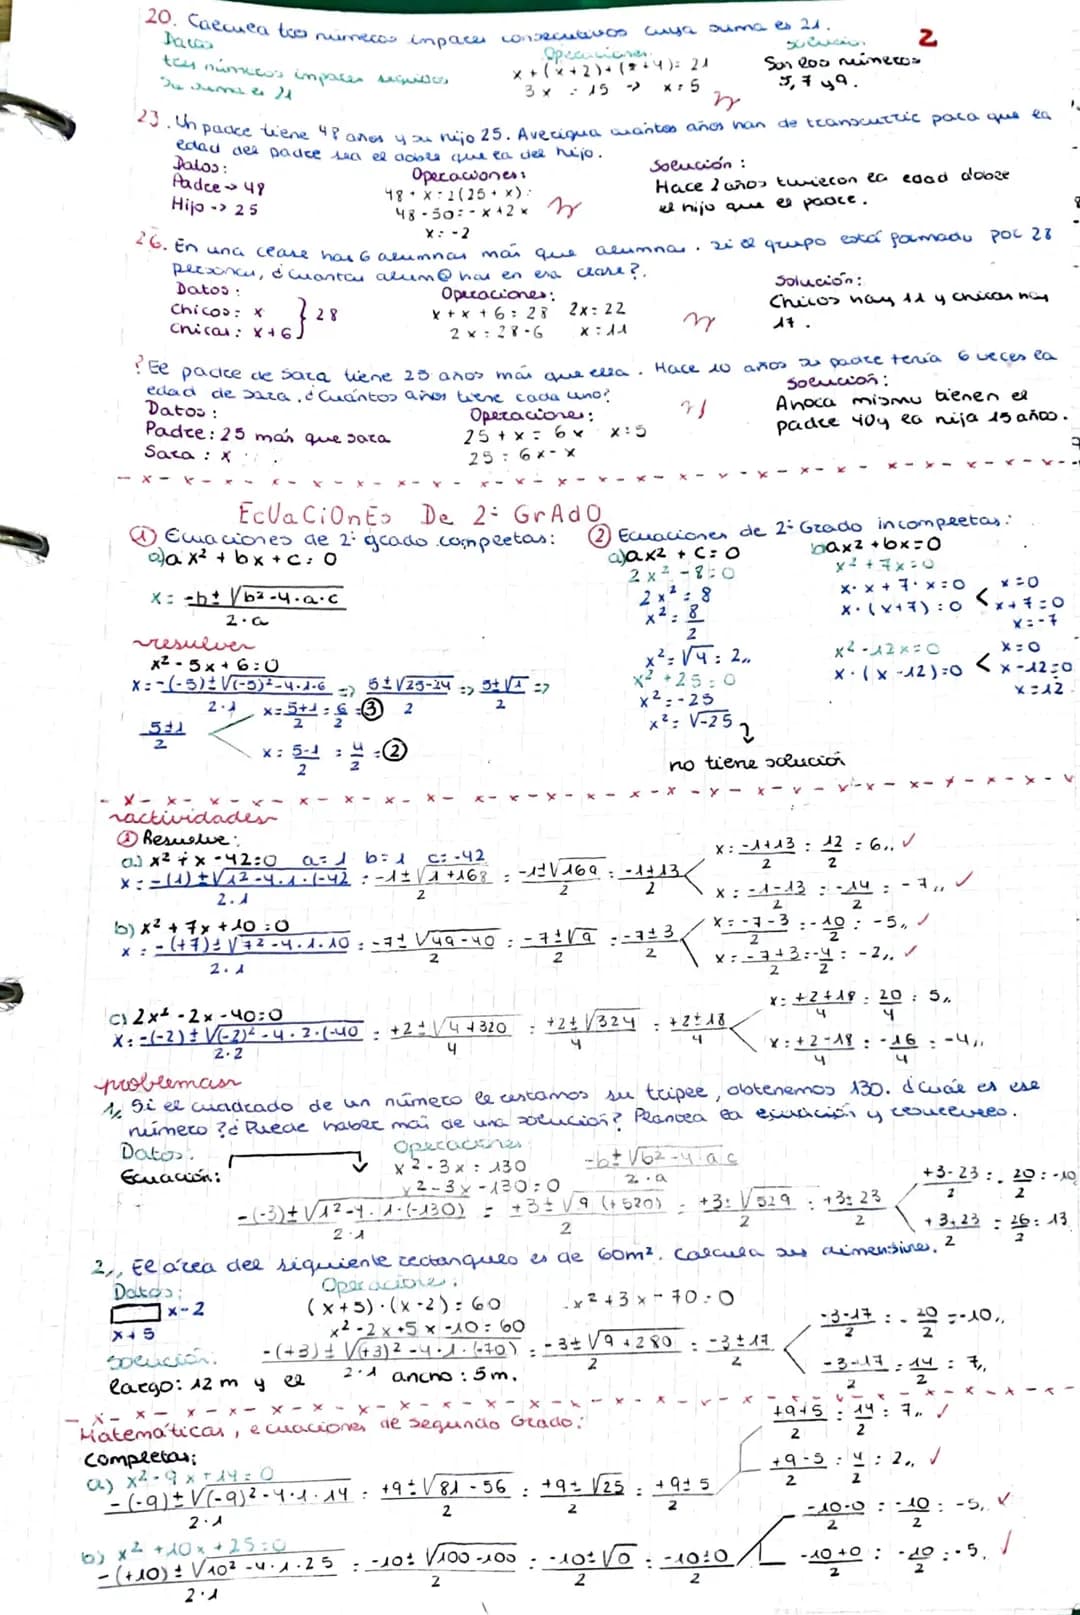 20. Calcula tres números impares consecutivos cuya suma es 21.
2
Datos
Operaciones
solución
tres números impares seguidos
x + (x+2) + (x+4) = 21
Son los números
Su suma es 21
3x = 15 -> x = 5
5, 7 y 9.
23. Un padre tiene 48 años y su hijo 25. Averigua cuántos años han de transcurrir para que la
edad del padre sea el doble que la del hijo.
Datos:
Operaciones:
Solución:
Padre -> 48
48 + x = 2(25 + x):
Hace 2 años tuvieron la edad doble
Hijo -> 25
48 - 50 = -x + 2x
el hijo que el padre.
x = -2
26. En una clase hay 6 alumnas más que alumnos. Si el grupo está formado por 28
personas, ¿cuantos alumn@ hay en esa clase?.
Datos:
Operaciones:
Solución:
Chicos: x } 28
x + x + 6 = 28 2x = 22
Chicos hay 11 y chicas hay
Chicas: x+6
2x = 28-6 x = 11
17.
? El padre de Sara tiene 25 años más que ella. Hace 10 años su padre tenía 6 veces la
edad de Sara. ¿Cuántos años tiene cada uno?
Datos:
Operaciones:
Solución:
Padre: 25 más que Sara
25 + x = 6x x = 5
Ahora mismo tienen el
Sara: x
25 = 6x - x
padre 40 y la hija 15 años.
ECUACIONES DE 2º GRADO
① Ecuaciones de 2º grado completas:
a) ax² + bx + c = 0
x = -b ± √b²-4·a·c / 2·a
resolver
x² - 5x + 6 = 0
x = -(-5) ± √(-5)²-4·1·6 / 2·1 => 5 ± √25-24 / 2 => 5 ± √1 / 2 =>
5±1 / 2
x = 5+1 / 2 = 6/2 = ③
x = 5-1 / 2 = 4/2 = ②
② Ecuaciones de 2º Grado incompletas:
a) ax² + c = 0
2x² - 8 = 0
2x² = 8
x² = 8/2
x² = √4 = 2,,
x² + 25 = 0
x² = -25
x² = √-25
no tiene solución
b) ax² + bx = 0
x² + 7x = 0
x·x + 7·x = 0
x·(x+7) = 0 < x = 0
x + 7 = 0
x = -7
x² - 12x = 0
x·(x-12) = 0 < x = 0
x - 12 = 0
x = 12
actividades
① Resuelve:
a) x² + x - 42 = 0 a = 1 b = 1 c = -42
x = -(1) ± √1²-4·1·(-42 / 2·1 = -1 ± √1+168 / 2 = -1 ± √169 / 2 = -1 ± 13 / 2
x = -1+13 / 2 = 12/2 = 6,, ✓
x = -1-13 / 2 = -14/2 = -7,, ✓
b) x² + 7x + 10 = 0
x = -(+7) ± √7²-4·1·10 / 2·1 = -7 ± √49-40 / 2 = -7 ± √9 / 2 = -7 ± 3 / 2
x = -7-3 / 2 = -10/2 = -5,, ✓
x = -7+3 / 2 = -4/2 = -2,, ✓
c) 2x² - 2x - 40 = 0
x = -(-2) ± √(-2)²-4·2·(-40 / 2·2 = +2 ± √4+320 / 4 = +2 ± √324 / 4 = +2 ± 18 / 4
x = +2+18 / 4 = 20/4 = 5,,
x = +2-18 / 4 = -16/4 = -4,,
problemas
1,, Si el cuadrado de un número le restamos su triple, obtenemos 130. ¿Cuál es ese
número? ¿Puede haber más de una solución? Plantea la ecuación y resuelvelo.
Datos:
Operaciones
Ecuación:
x² - 3x = 130
-b ± √b²-4·a·c / 2·a
x² - 3x - 130 = 0
-(-3) ± √1²-4·1·(-130) / 2·1 = +3 ± √9 (+520) / 2 = +3 ± √529 / 2 = +3 ± 23 / 2
+3-23 / 2 = -20/2 = -10
+3+23 / 2 = 26/2 = 13
2,, El área del siguiente rectángulo es de 60m². Calcula sus dimensiones.
Datos:
Operaciones:
x-2
(x+5)·(x-2) = 60
x² + 3x - 70 = 0
x+5
x² - 2x + 5x - 10 = 60
Solución:
-(+3) ± √(+3)²-4·1·(-70) / 2·1 = -3 ± √9+280 / 2 = -3 ± 17 / 2
-3-17 / 2 = -20/2 = -10,,
-3-17 / 2 = 14/2 = 7,,
Largo: 12 m y el ancho: 5m.
Matemáticas, ecuaciones de segundo Grado:
Completas:
a) x² - 9x + 14 = 0
-(-9) ± √(-9)²-4·1·14 / 2·1 = +9 ± √81-56 / 2 = +9 ± √25 / 2 = +9 ± 5 / 2
+9+5 / 2 = 14/2 = 7,, ✓
+9-5 / 2 = 4/2 = 2,, ✓
b) x² + 10x + 25 = 0
-(+10) ± √10²-4·1·25 / 2·1 = -10 ± √100-100 / 2 = -10 ± √0 / 2 = -10 ± 0 / 2
-10-0 / 2 = -10/2 = -5,, ✓
-10+0 / 2 = -10/2 = -5. ✓